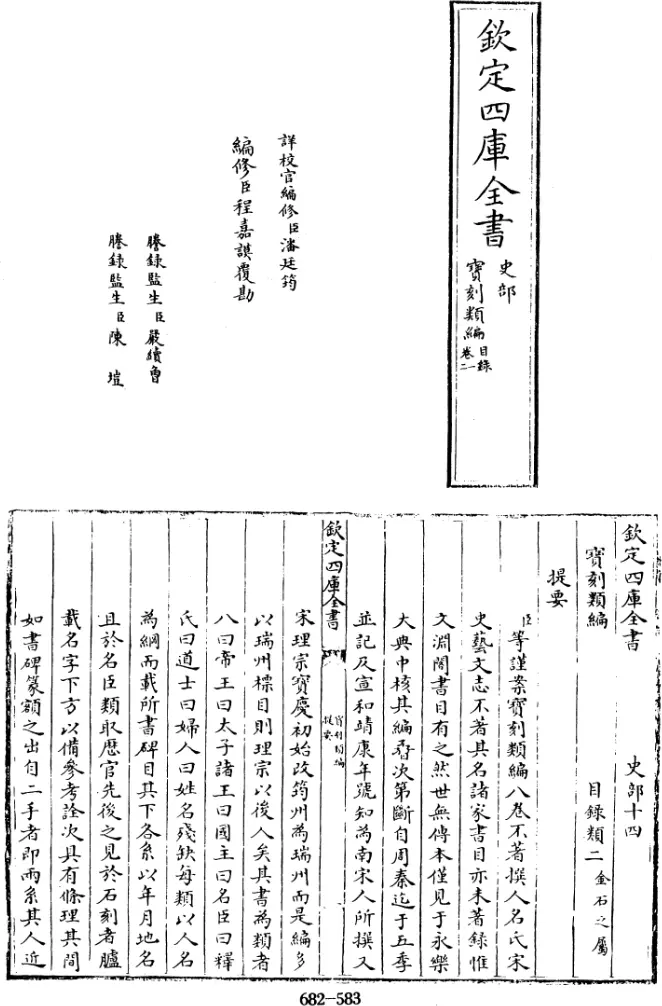 欽定四庫全書
史部
寶刻類編
目錄
卷一
二
詳校官編修臣潘廷筠
編修臣程嘉謨覆勘
謄錄監生臣嚴續曾
謄錄監生臣陳塏
欽定四庫全書 史部十四
寶刻類編 目錄類二 金石之屬
提要
臣等謹案寶刻類編八卷不著撰人名氏宋
史藝文志不著其名諸家書目亦未著錄惟
文淵閣書目有之然世無傳本僅見于永樂
大典中核其編次第斷自周秦迄于五季
並記及宣和靖康年號知為南宋人所撰又
欽定四庫全書
寶刻類編
提要
宋理宗寶慶初始改筠州為瑞州而是編多
以瑞州標目則理宗以後人矣其書為類者
八曰帝王曰太子諸王曰國主曰名臣曰釋
氏曰道士曰婦人曰姓名殘缺每類以人名
為綱而載所書碑目其下各系以年月地名
且於名臣類取歷官先後之見於石刻者臚
載名字下方以備參考詮次具有條理其間
如書碑篆額之出自二手者即兩系其人近
682-583